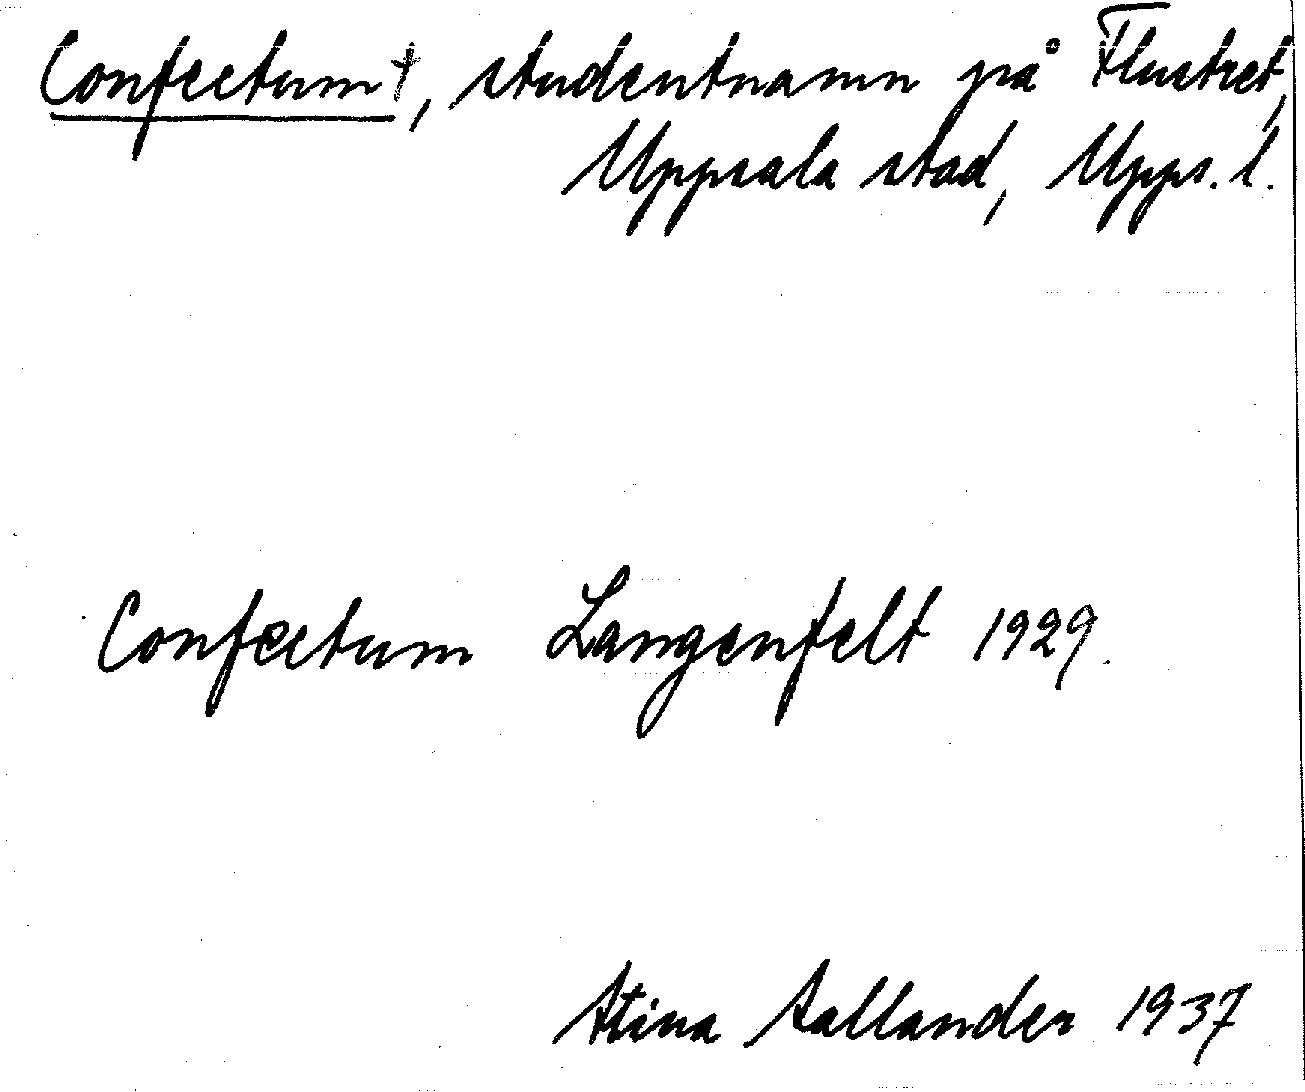 Confectum†, studentnamn på Flustret,
Uppsala stad, Upps. l.
Confectum Langenfelt 1929.
Stina Sallander 1937